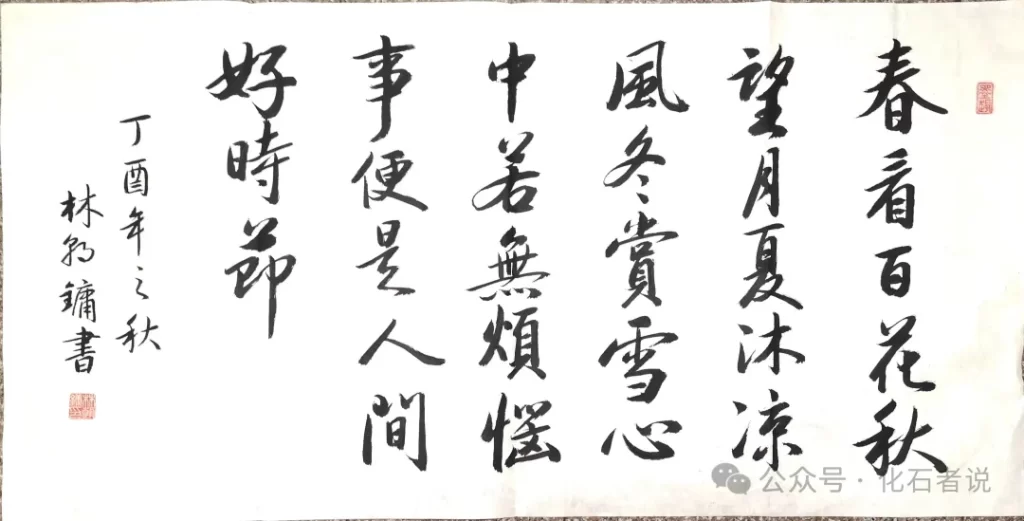 春看百花秋
望月夏沐凉
風冬賞雪心
中若無煩惱
事便是人間
好時節
丁酉年之秋
林為鏞書
公众号·化石者说